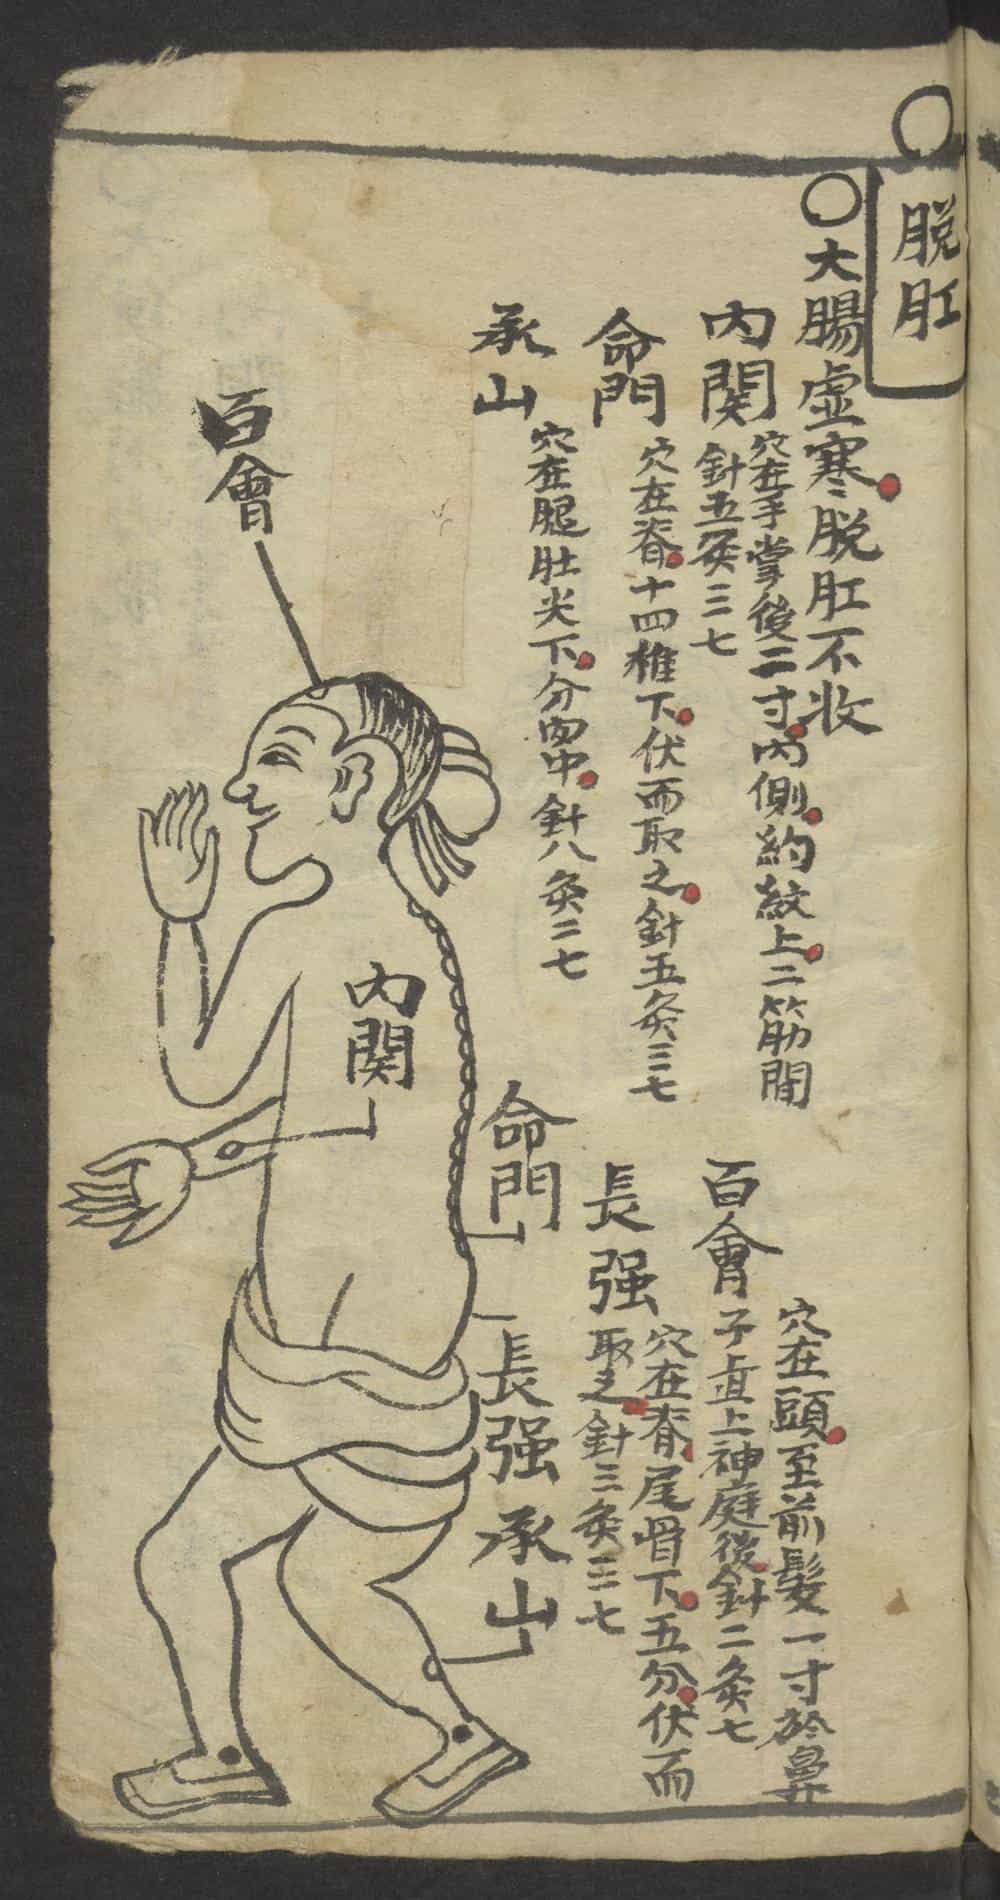 ○
脱肛
○大腸虚寒脱肛不收
內関
穴在手掌後二寸內側約紋上二筋間
針五灸三七
命門
穴在脊十四椎下伏而取之針五灸三七
承山
穴在腿肚尖下分肉中針八灸二七
百會
穴在頭至前髮一寸於鼻
子直上神庭後針二灸七
長强
穴在脊尾骨下五分伏而
取之針三灸三七
百會
內関
命門
長强
承山